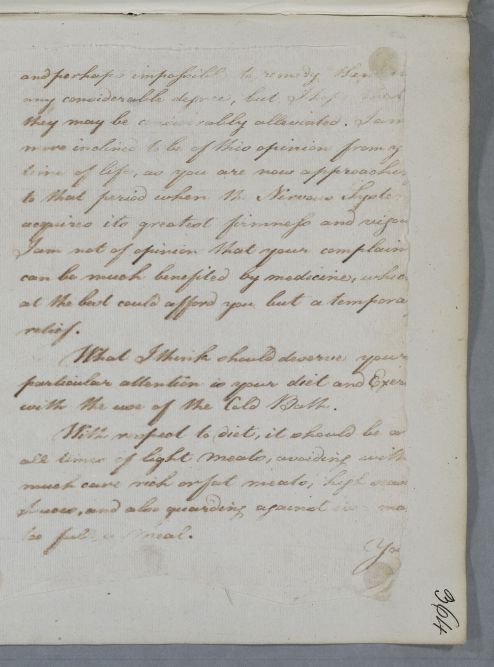 and perhaps impossible to remedy them in
any considerable degree, but I hope that
they may be considerably alleviated. I am
more inclined to be of this opinion from y
time of life, as you are now approachin
to that period when the Nervous System
acquires its greatest firmness and vigou
I am not of opinion that your complain
can be much benefited by medicine, whic
at the best could afford you but a tempora
relief.
What I think should deserve your
particular attention is your diet and Exer
with the use of the Cold Bath.
With respect to diet, it should be a
all times of light meats, avoiding with
much care rich or fat meats, high
and also guarding against
too full a meal.
Yo
364